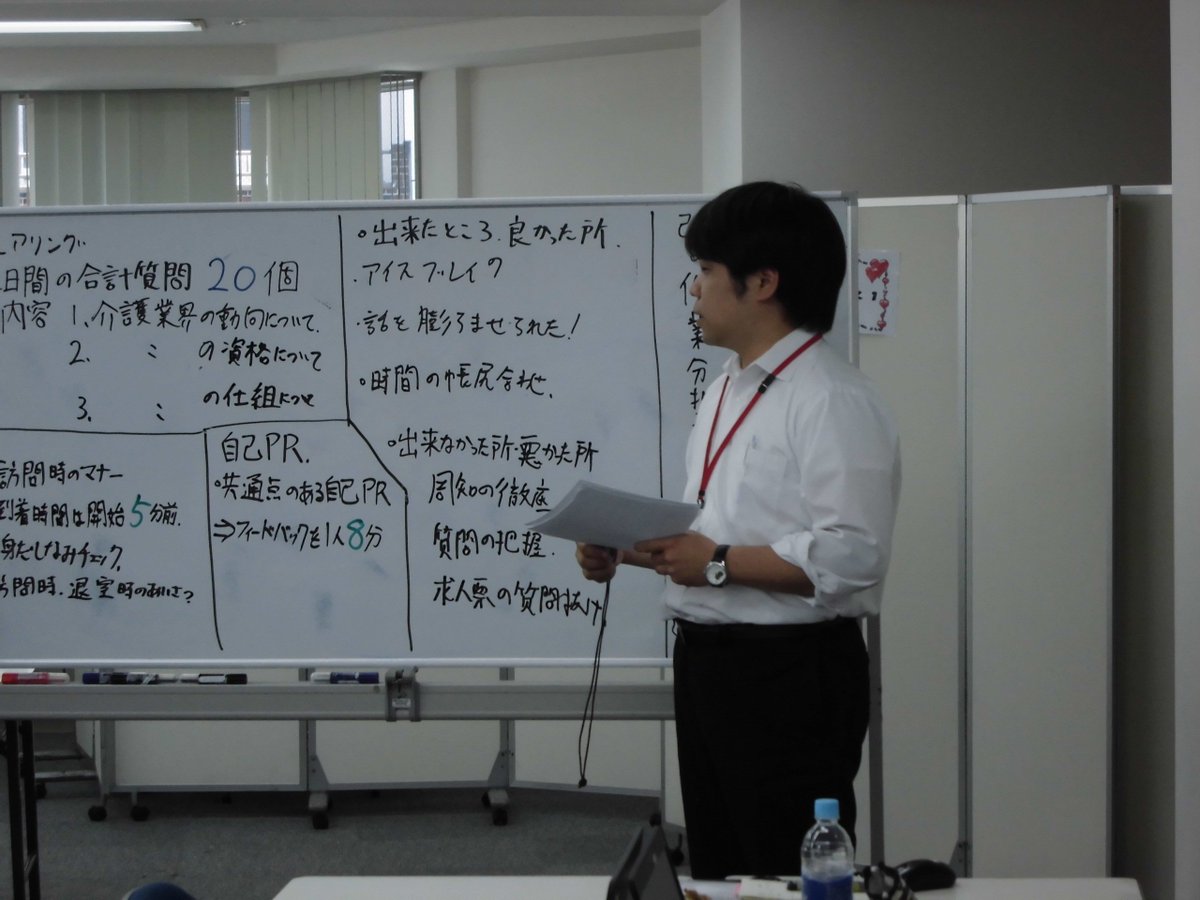 アリング
日間の合計質問 20個
内容 1、介護業界の動向について.
2. 〃 の資格について
3. 〃 の仕組について
訪問時のマナー
到着時間は開始5分前.
身だしなみチェック.
訪問時.退室時のあいさつ
自己PR.
・共通点のある自己PR
⇒フィードバックを1人8分
・出来たところ.良かった所.
・アイスブレイク
・話を膨ろませられた!
・時間の帳尻合わせ.
・出来なかった所・悪かった所
周知の徹底
質問の把握.
求人票の質問抜け
業
分